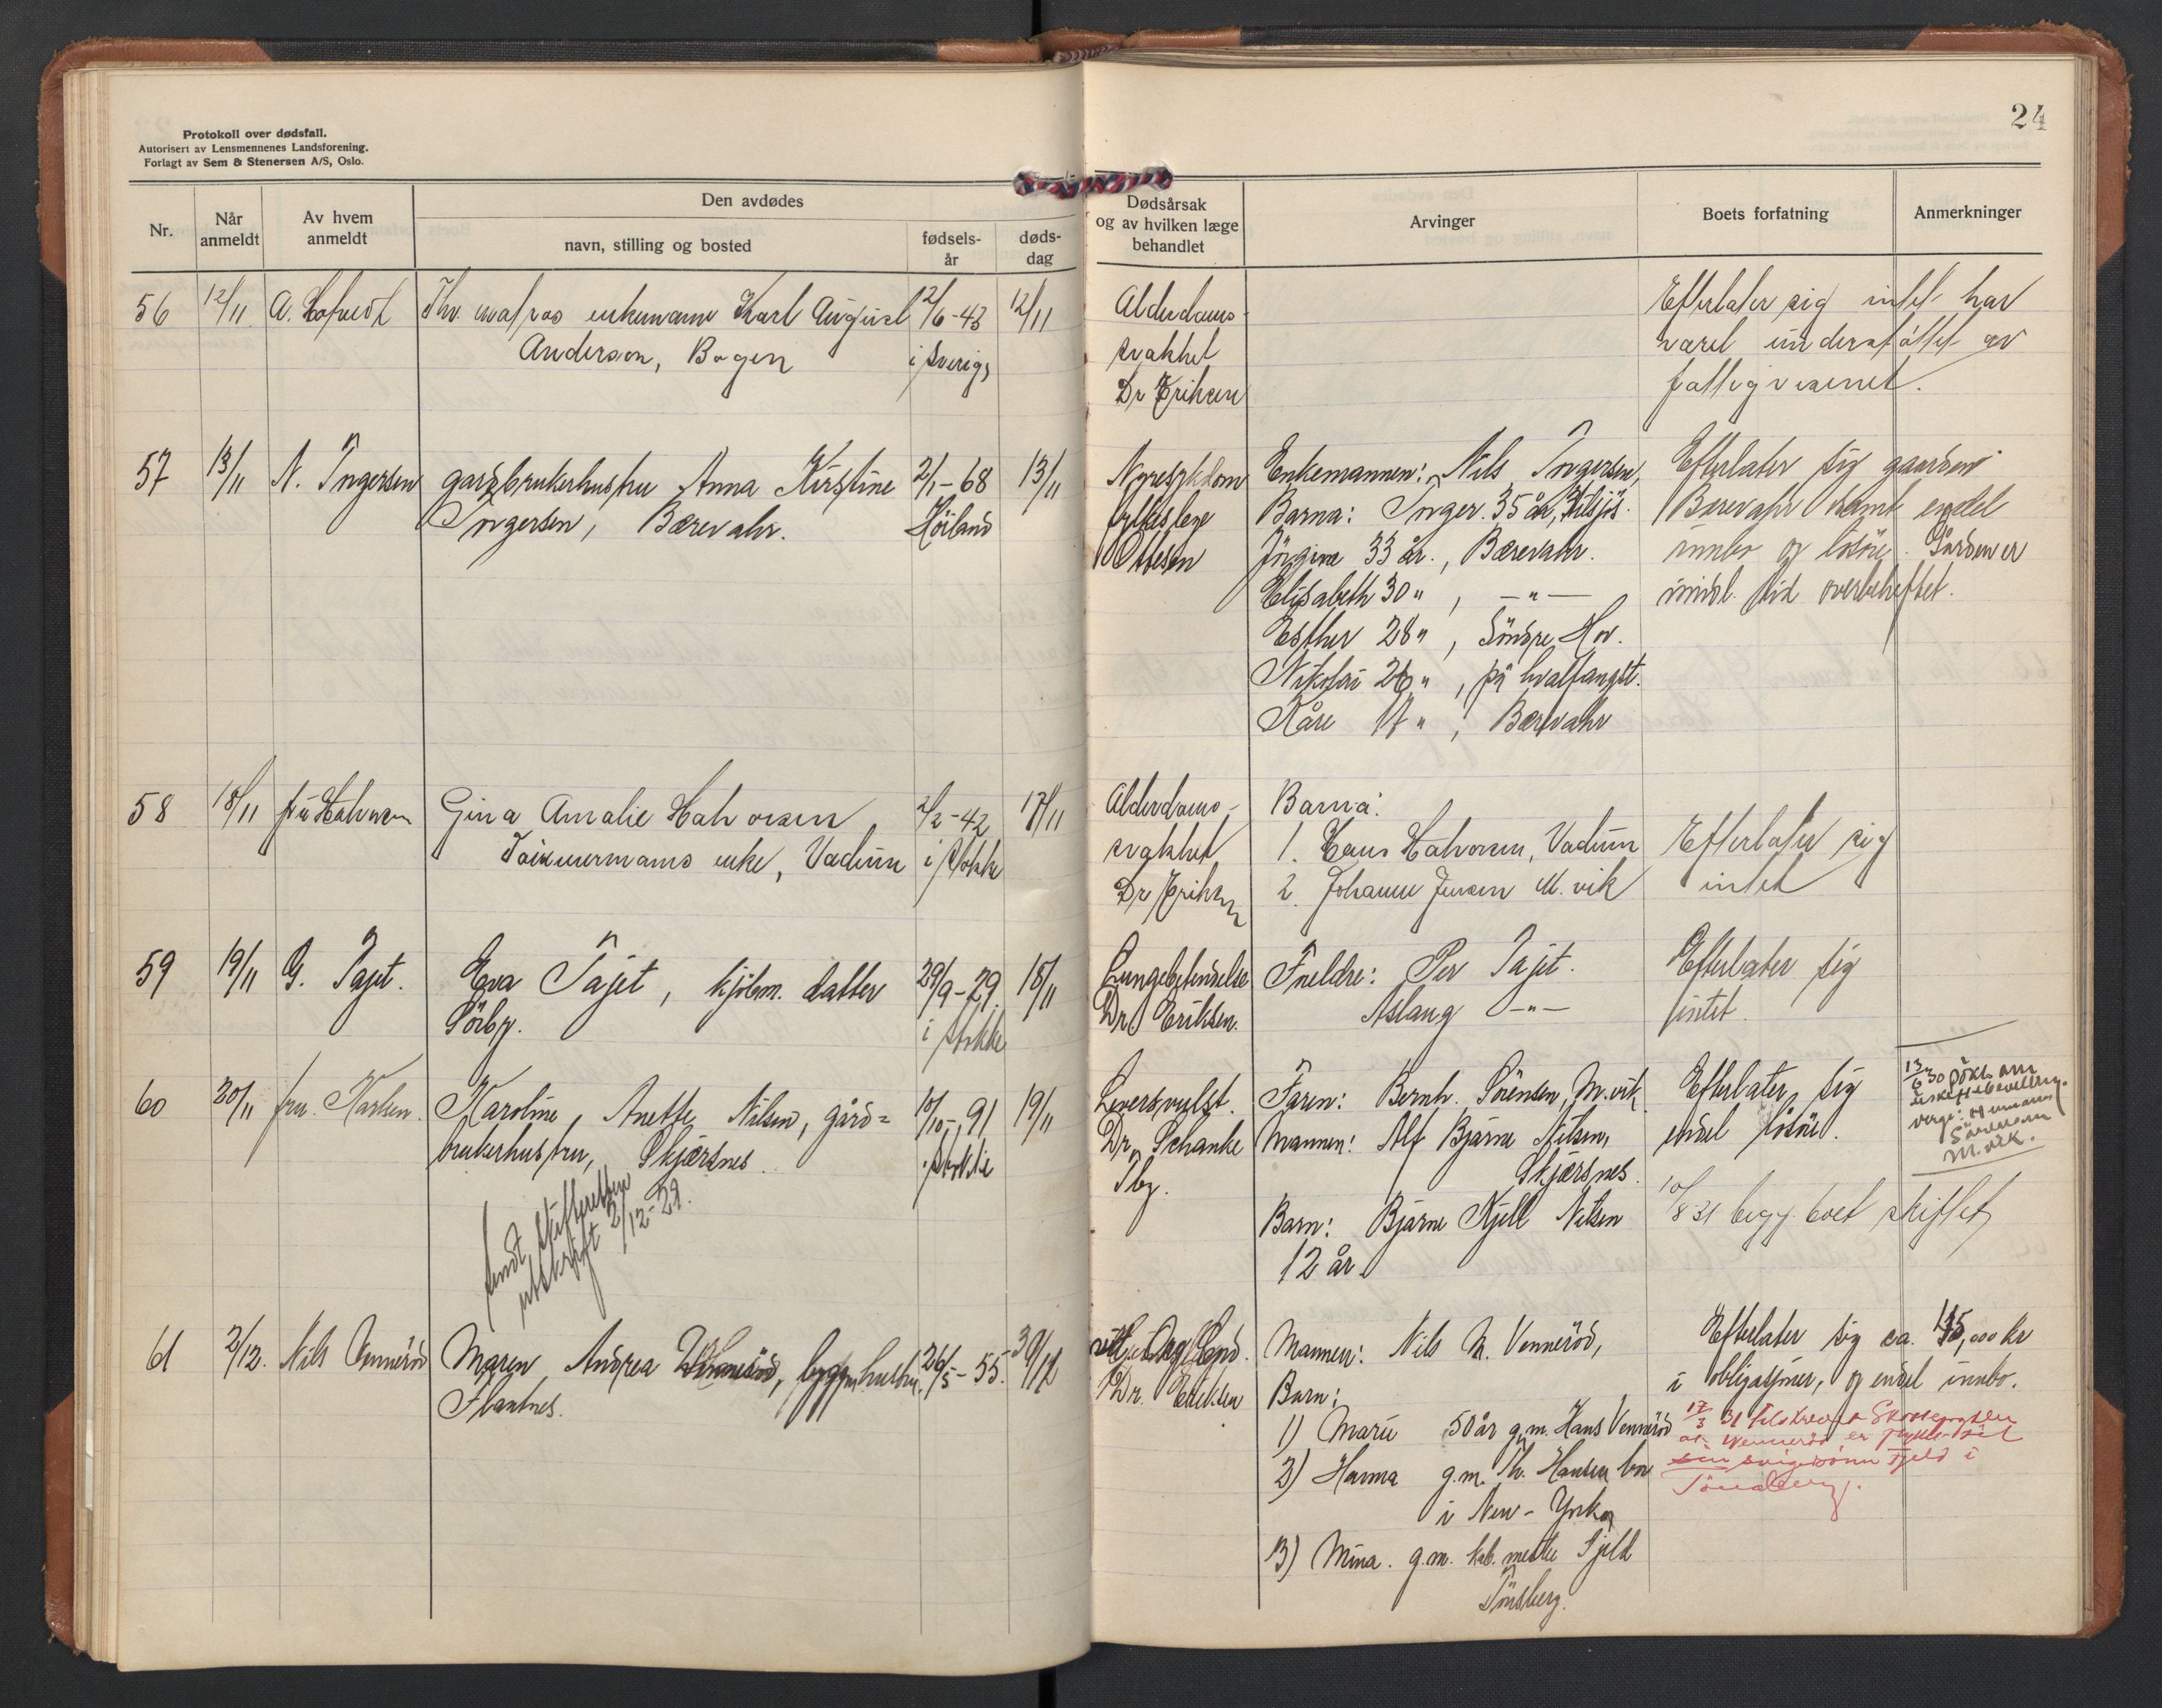 24
Protokoll over dødsfall.
Autorisert av Lensmennenes Landsforening.
Forlagt av Sem & Stenersen A/S, Oslo.
Nr.
Når anmeldt
Av hvem anmeldt
Den avdødes
navn, stilling og bosted
fødsels-år
døds-dag
Dødsårsak og av hvilken læge behandlet
Arvinger
Boets forfatning
Anmerkninger
56 12/11 Fhv. matros enkemann Karl August 2/6-43 12/11
Anderson, Bogen i Sverige
Alderdoms-
svakhet
Dr Eriksen
Efterlater sig intet har
vært understøttet av
fattigvesenet.
57 13/11 N. Ingersen gardbrukerhustru Anna Kirstine 2/1-68 13/11
Ingersen, Bærevahr. Höiland
Nyresykdom
fylkeslege
Ottesen
Enkemannen: Nils Ingersen,
Barna: Inger 35 år,
Jörgine 33 år., Bærevahr.
Elisabeth 30 " , —"—
Esther 28 " , Söndre Hov.
Nikolai 26 " , på hvalfangst.
Kåre 17 " , Bærevahr
Efterlater sig gaarden
Bærevahr samt endel
innbo og lösöre. Gården er
imidl. tid overbeheftet.
58 18/11 fru Halvorsen Gina Amalie Halvorsen 2/2-42 17/11
Tömmermanns enke, Vadum i Stokke
Alderdoms-
svakhet
Dr Eriksen
Barna:
1. Hans Halvorsen, Vadum
2. Johanne Jensen M.vik
Efterlater sig
intet
59 19/11 G. Tajet. Eva Tajet, kjöbm. datter 29/9-29 18/11
Sörby. i Stokke
Lungebetendelse
Dr. Eriksen.
Foreldre: Per Tajet.
Aslaug —"—
Efterlater sig
intet.
60 20/11 fru. Karlsen. Karoline, Anette Nilsen, gård=
brukerhustru, Skjærsnes. 10/10-91 19/11
i Stokke
sendt skifteretten
utskrift 2/12-29.
Leversvulst.
Dr. Schanke
Tbg.
Faren: Bernh. Sörensen, M.vik
Mannen: Alf Bjarne Nilsen,
Skjærsnes.
Barn: Bjarne Kjell Nilsen
12 år.
Efterlater sig
endel lösöre.
13/6 30 sökt om
uskiftebevilling.
verge: Hermann
Sörensen
M.vik.
10/8 31 begj. boet skiftet
61 2/12. Nils Venneröd Maren Andrea Venneröd, byggm. hustru. 26/5-55.
Flåtnes.
Dr. Eriksen
Mannen: Nils M. Venneröd,
Barn:
1) Marie 50 år g.m. Hans Venneröd
2) Hanna g.m. Th. Hansen bor
i New-York
3) Mina. g.m. Fjeld
Tönsberg.
Efterlater sig ca. 15,000 kr
i obligasjoner, og endel innbo.
17/3 31
at Venneröd er flyttet til
sin svigersönn Fjeld i
Tönsberg.